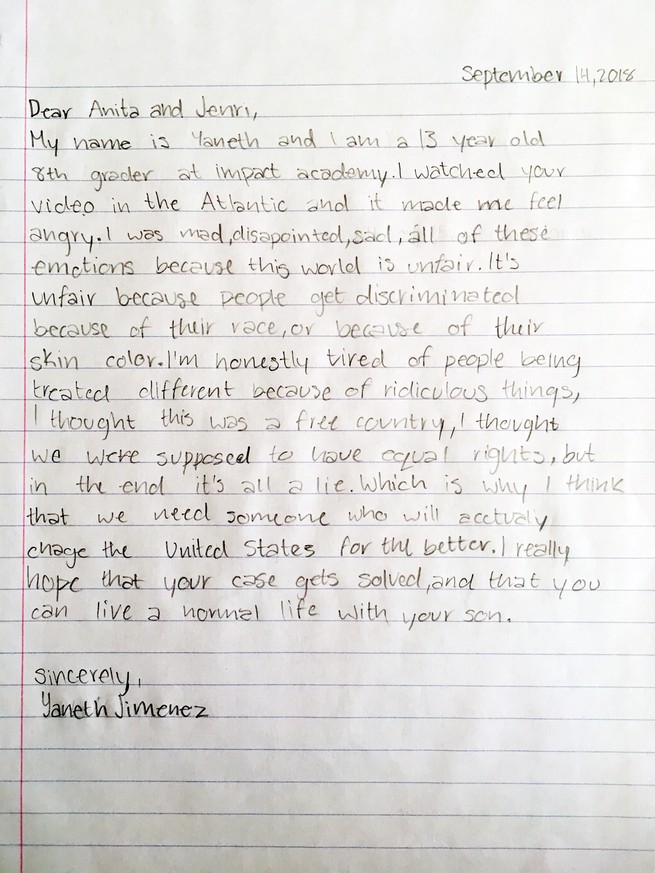 September 14, 2018
Dear Anita and Jenri,
My name is Yaneth and I am a 13 year old
8th grader at impact academy. I watched your
video in the Atlantic and it made me feel
angry. I was mad, disapointed, sad, all of these
emotions because this world is unfair. It's
unfair because people get discriminated
because of their race, or because of their
skin color. I'm honestly tired of people being
treated different because of ridiculous things,
I thought this was a free country, I thought
we were supposed to have equal rights, but
in the end it's all a lie. Which is why I think
that we need someone who will acctualy
chage the United States for the better. I really
hope that your case gets solved, and that you
can live a normal life with your son.
sincerely,
Yaneth Jimenez